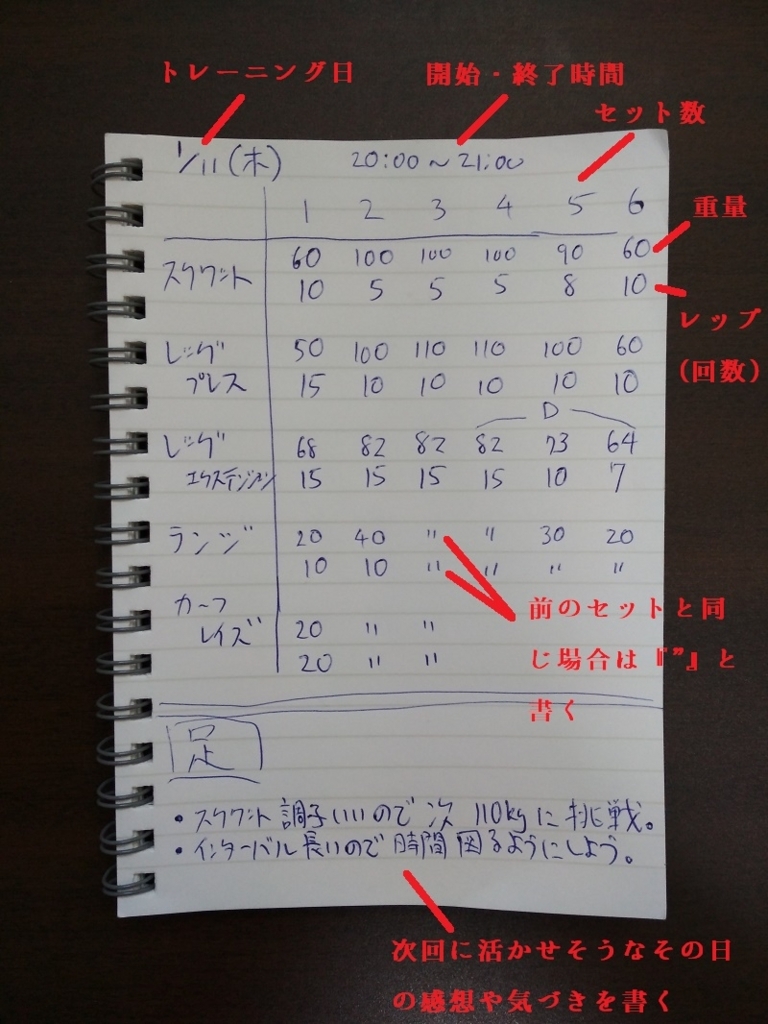 トレーニング日
開始・終了時間
セット数
1/11(木) 20:00~21:00
1 2 3 4 5 6
重量
スクワット 60 100 100 100 90 60
10 5 5 5 8 10
レップ
(回数)
レッグ 50 100 110 110 100 60
プレス 15 10 10 10 10 10
D
レッグ 68 82 82 82 73 64
エクステンション 15 15 15 15 10 7
ランジ 20 40 〃 〃 30 20
10 10 〃 〃 〃 〃
カーフ
レイズ 20 〃 〃
20 〃 〃
前のセットと同
じ場合は『”』と
書く
足
・スクワット調子いいので次110kgに挑戦。
・インターバル長いので時間図るようにしよう。
次回に活かせそうなその日
の感想や気づきを書く